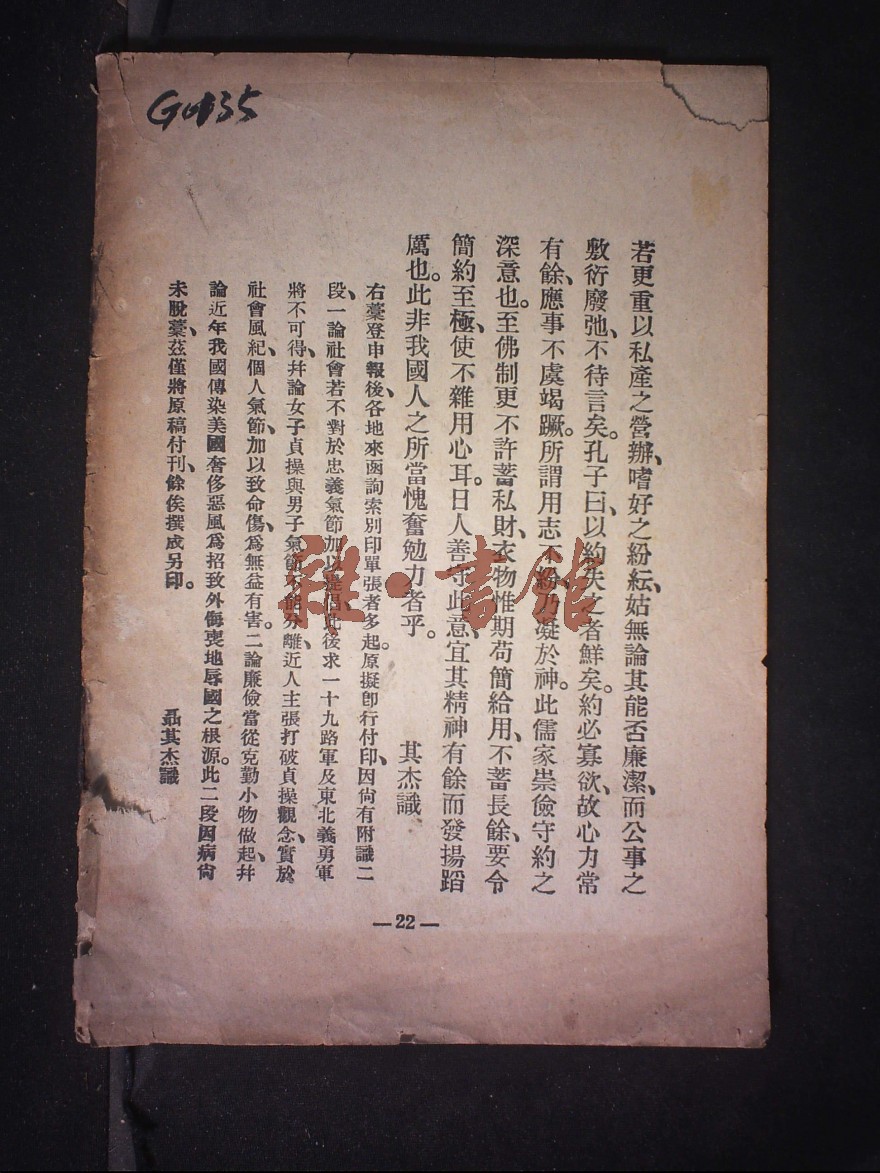 G0135
若更重以私產之營辦、嗜好之紛紜、姑無論其能否廉潔、而公事之
敷衍廢弛、不待言矣。孔子曰、以約失之者鮮矣。約必寡欲、故心力常
有餘、應事不虞竭蹶。所謂用志不紛、乃凝於神。此儒家祟儉守約之
深意也。至佛制更不許蓄私財、衣物惟期苟簡給用、不蓄長餘、要令
簡約至極、使不雜用心耳。日人善守此意、宜其精神有餘而發揚蹈
厲也。此非我國人之所當愧奮勉力者乎。 其杰識
右藁登申報後、各地來函詢索別印單張者多起。原擬卽行付印、因尙有附識二
段、一論社會若不對於忠義氣節加以提倡、此後求一十九路軍及東北義勇軍
將不可得、幷論女子貞操與男子氣節不能分離、近人主張打破貞操觀念、實於
社會風紀、個人氣節、加以致命傷、爲無益有害。二論廉儉當從克勤小物做起、幷
論近年我國傳染美國奢侈惡風爲招致外侮喪地辱國之根源。此二段因病尙
未脫藁、茲僅將原稿付刊、餘俟撰成另印。
聶其杰識
—22—
雜·書館